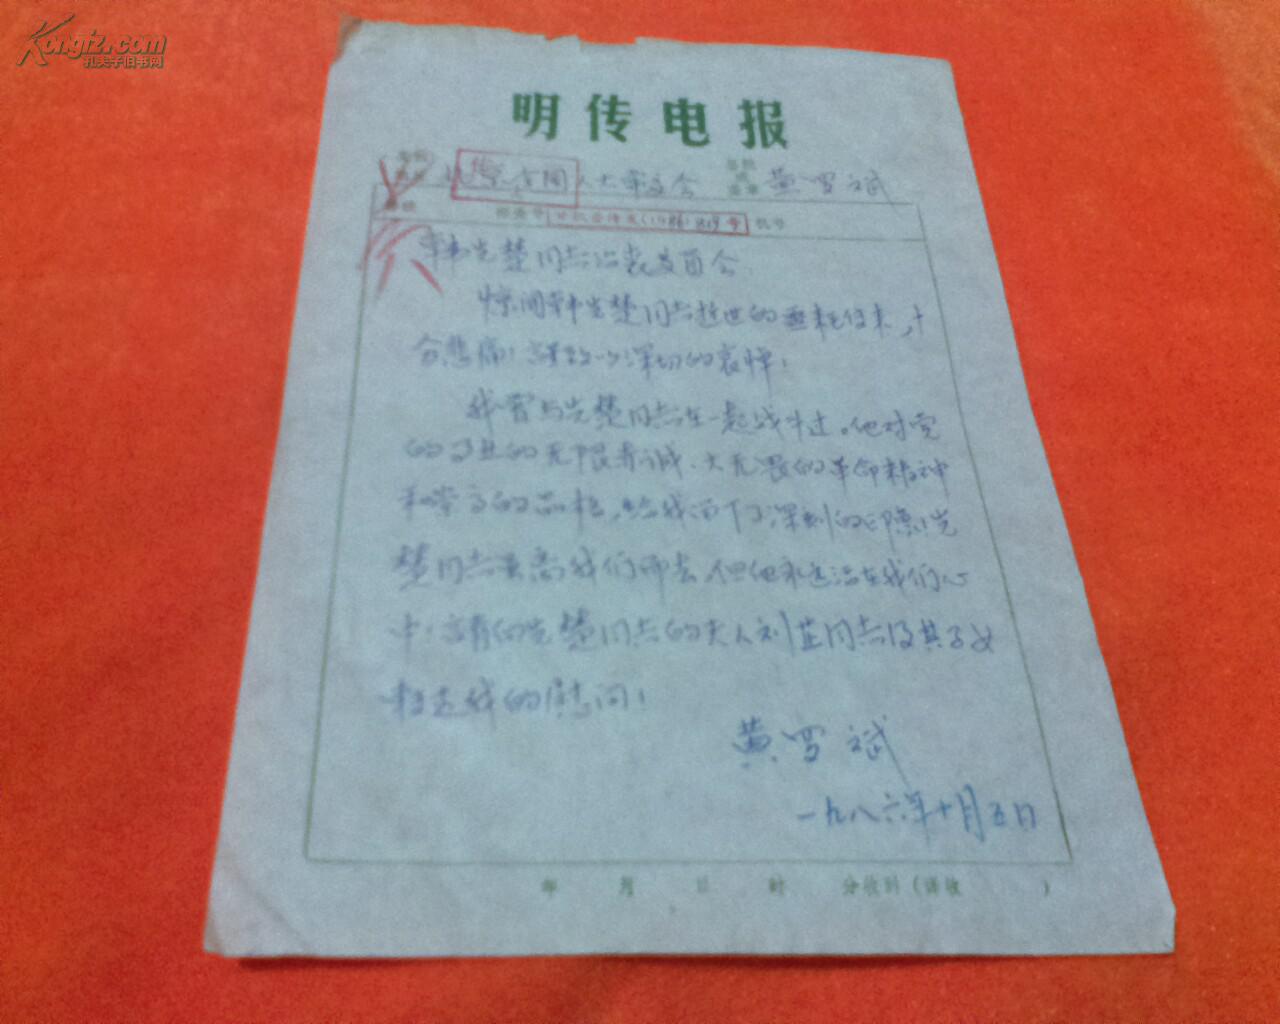 Kongfz.com
孔夫子旧书网
明传电报
全国人大常委会 黄罗斌
(1986) 819号 机号
韩先楚同志治丧委员会:
惊闻韩先楚同志逝世的噩耗传来,十
分悲痛!致以深切的哀悼!
我曾与先楚同志在一起战斗过。他对党
的事业的无限忠诚、大无畏的革命精神
和崇高的品格,给我留下了深刻的印象!先
楚同志虽离我们而去,但他永远活在我们心
中!先楚同志的夫人刘芷同志及其子女
转达我的慰问!
黄罗斌
一九八六年十月五日
年 月 日 时 分收到(译收 )